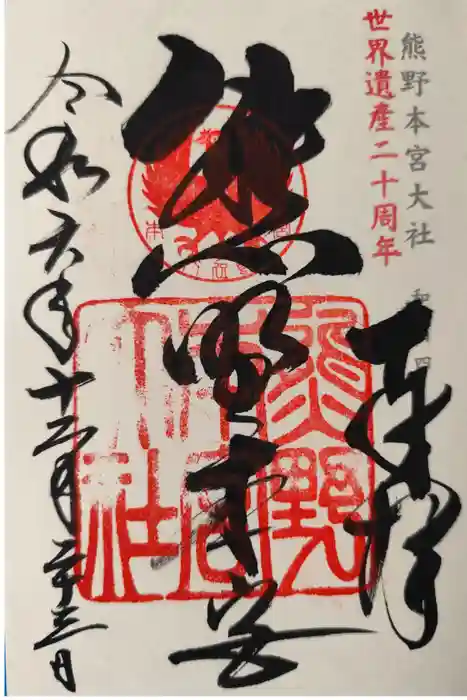 熊野本宮大社
世界遺産二十周年
奉拝
熊野本宮
令和六年十二月二十三日
熊野
本宮
大社